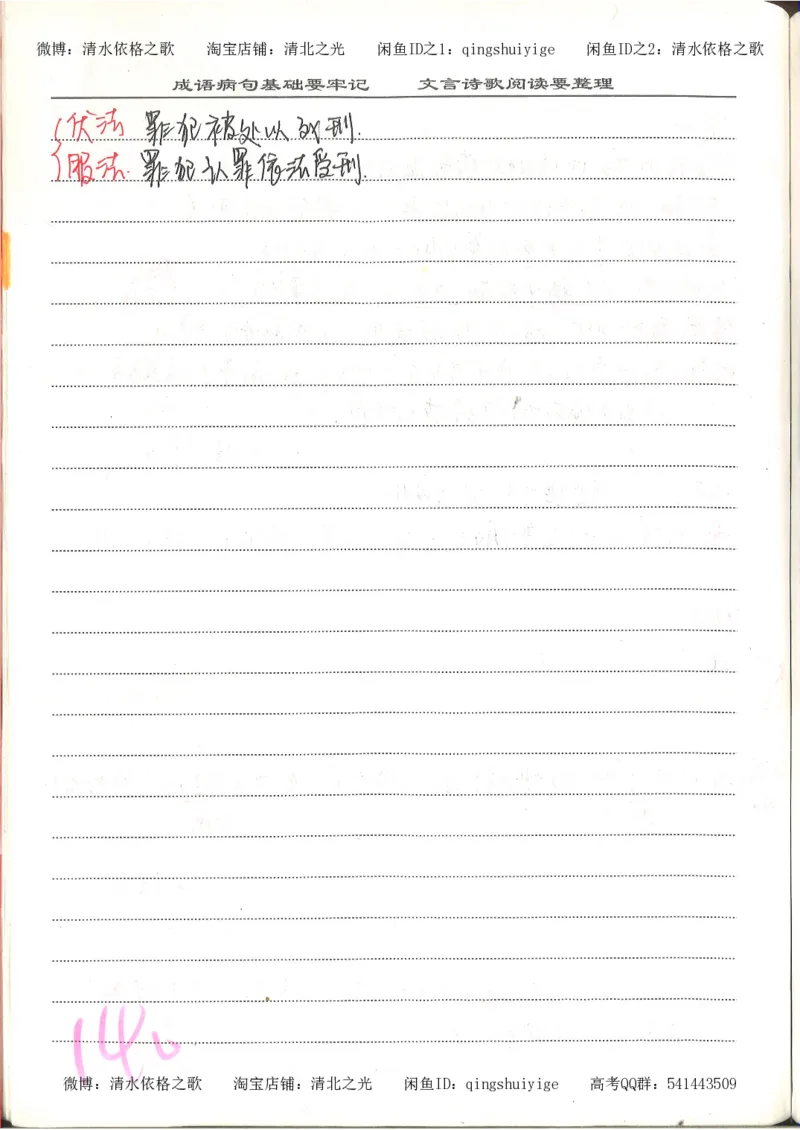 微博：清水依格之歌 淘宝店铺：清北之光 闲鱼ID之1：qingshuiyige 闲鱼ID之2：清水依格之歌
成语病句基础要牢记 文言诗歌阅读要整理
伏法 罪犯被处以死刑.
服法. 罪犯认罪依法受刑.
140
微博：清水依格之歌 淘宝店铺：清北之光 闲鱼ID：qingshuiyige 高考QQ群：541443509